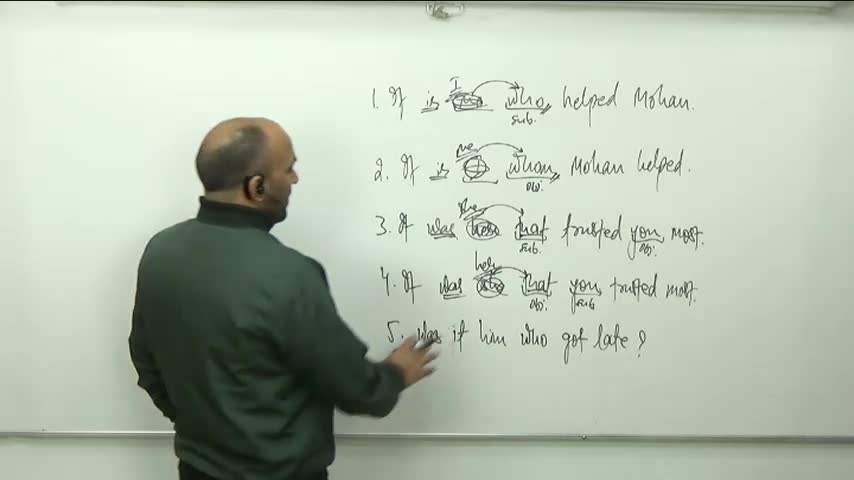 I
1. It is who helped Mohan.
sub.
me
2. It is whom Mohan helped.
obj.
she
3. It was that trusted you most.
sub. obj.
her
4. It was that you trusted most.
obj. sub
5. Was it him who got late?